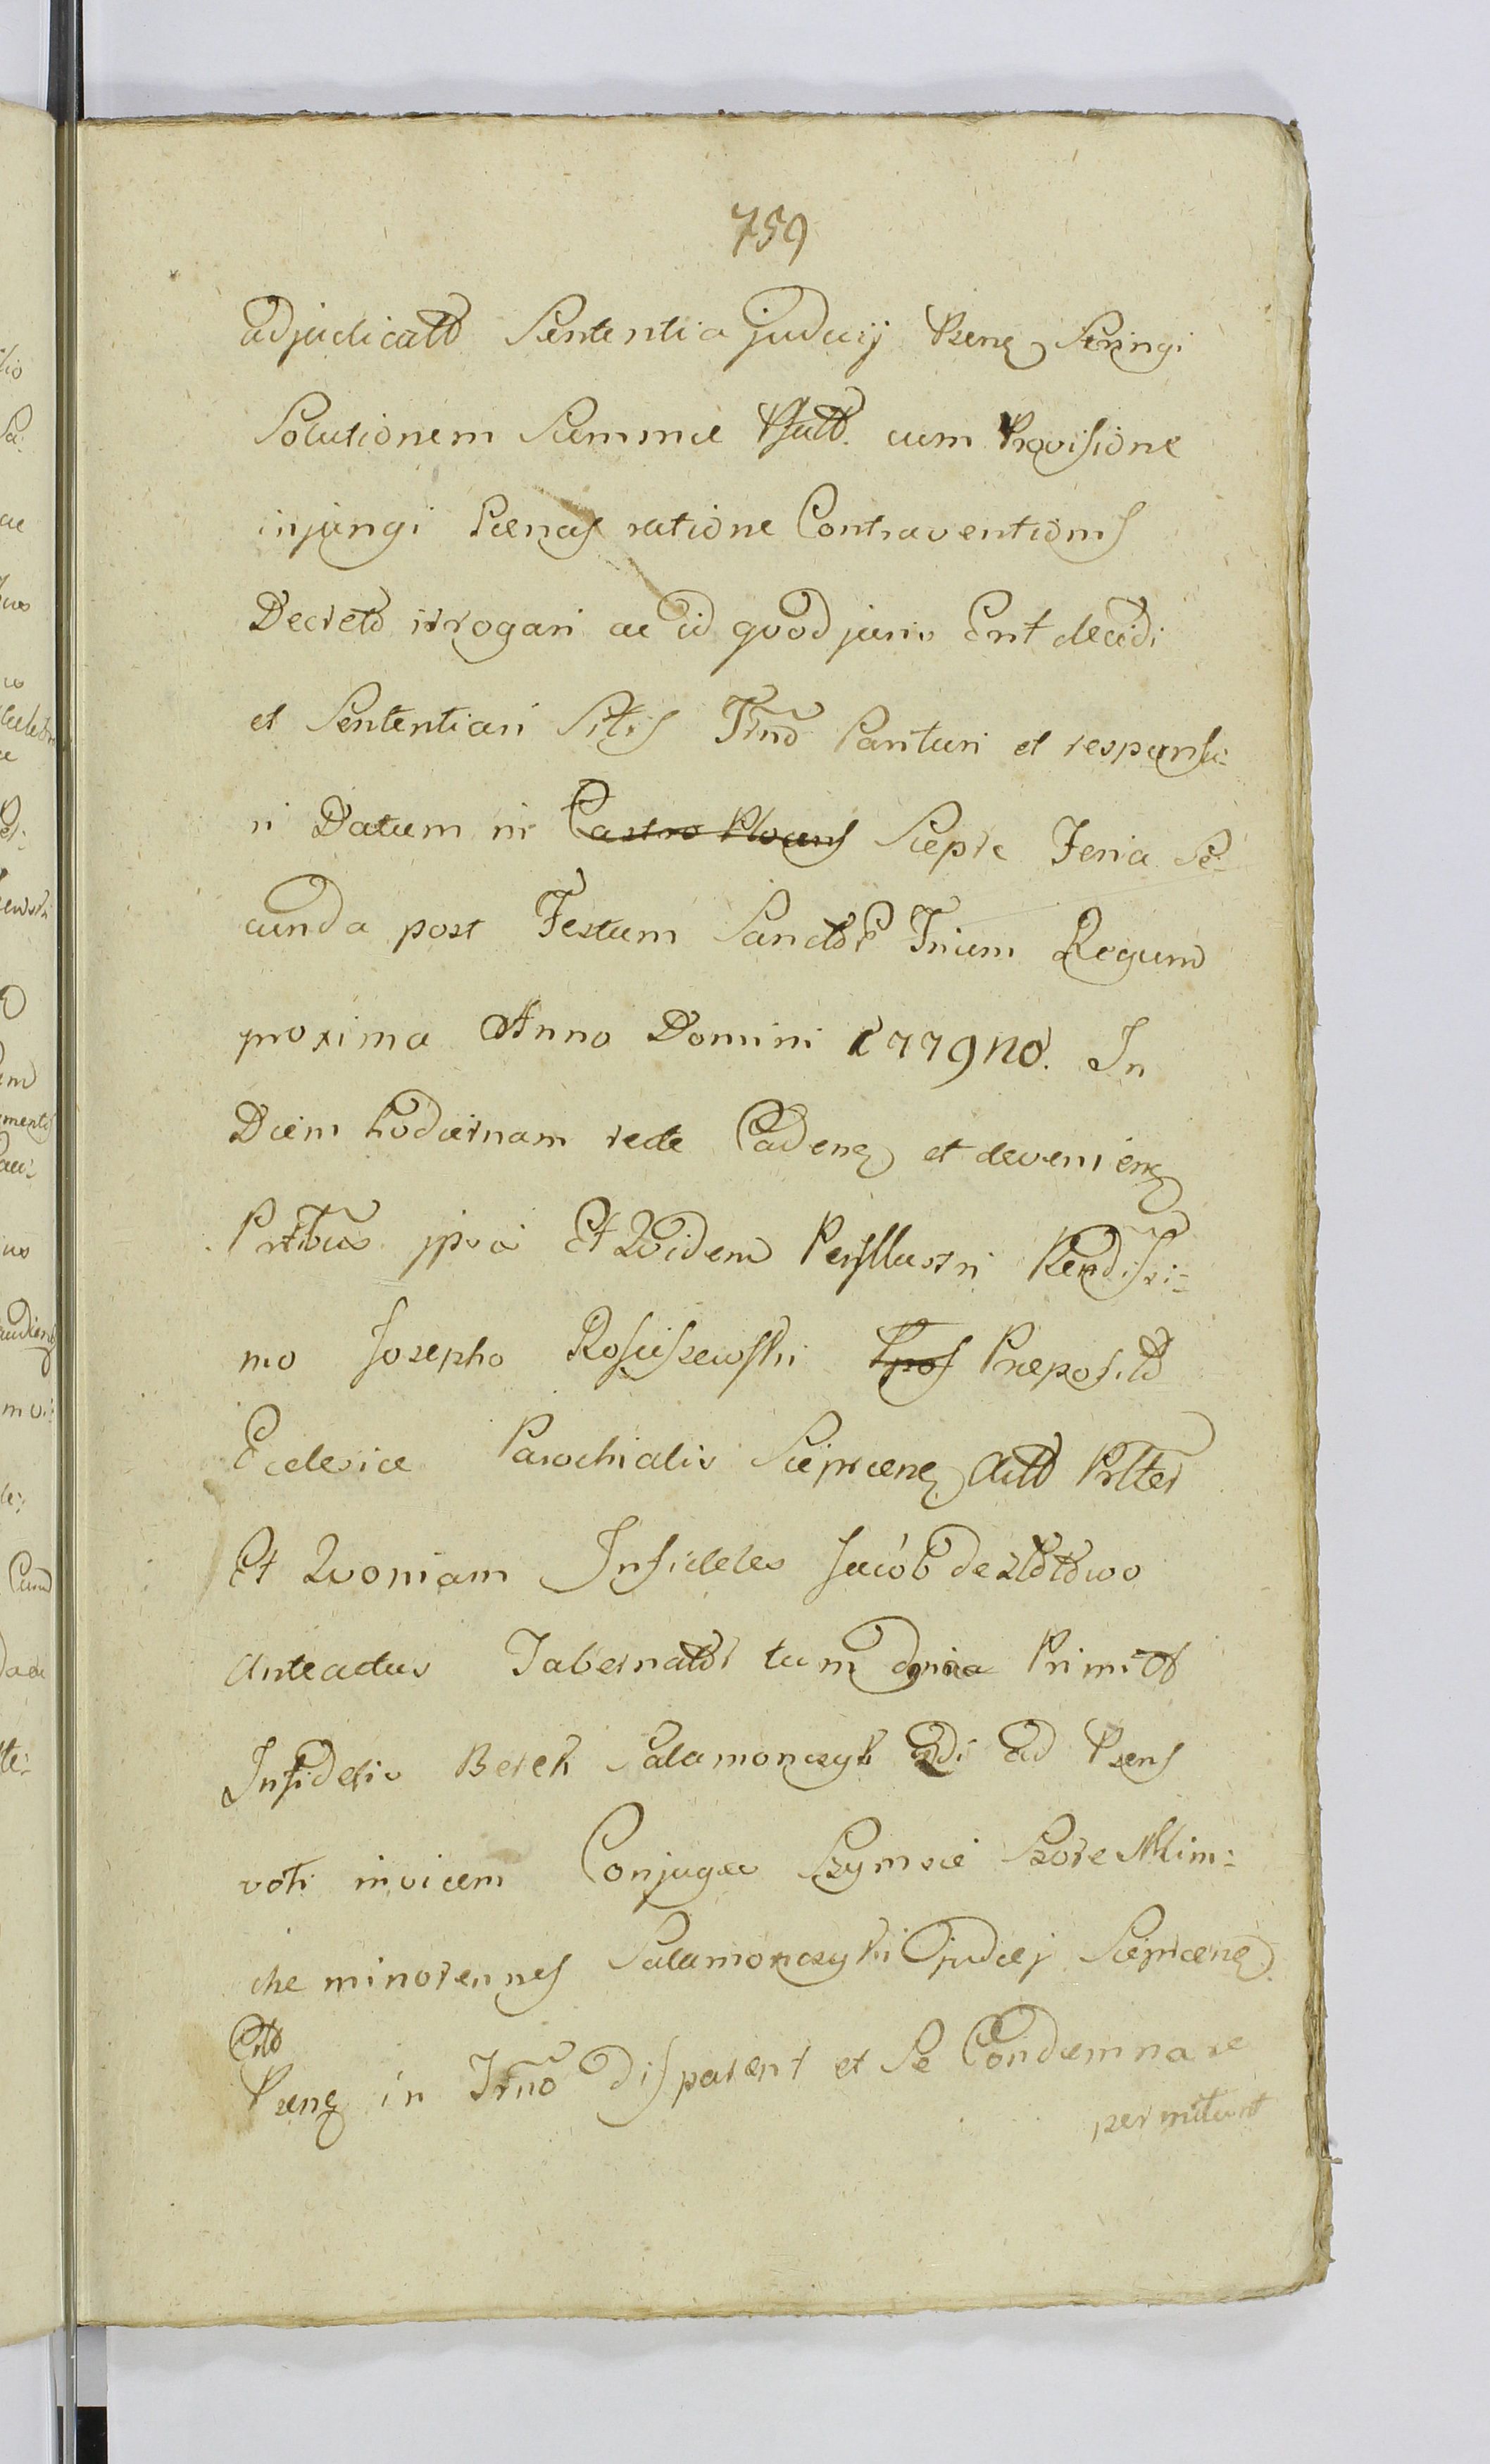 759
adjudicato Sententia judicij Psenς Seringi
Solutionem Summæ Psato. cum Provisione
injungi Pœnas ratione Contraventionis
Decreto irrogari ac id quod juris Erit decidi
et Sententiari Sitis Trno Parituri et responsu-
ri Datum in Castro Plocens Siepre Feria Se-
cunda post Festum Sanctor Trium Regum
proxima Anno Domini 1779no. In
Diem hodiernam recte Cadenς et devenienς
Prtibus jpsa Et Quidem Perjllustri Rendissi-
mo Josepho Rosciszewski Ppos Præposito
Ecclesiæ Parochialis Sieprcenς Actto Prlter
Et Quoniam Infideles Jacob de Złotowo
Anteactus Tabernator tum Primi
Infidelis Berek Salamonczyk 2di Ad Psens
voti invicem Conjuges Szymsie Szore Mim-
che minorennes Salamonczyki judæj Sieprcenς
Citto
Psenς in Trno Disparent et Se Condemnare
permittunt